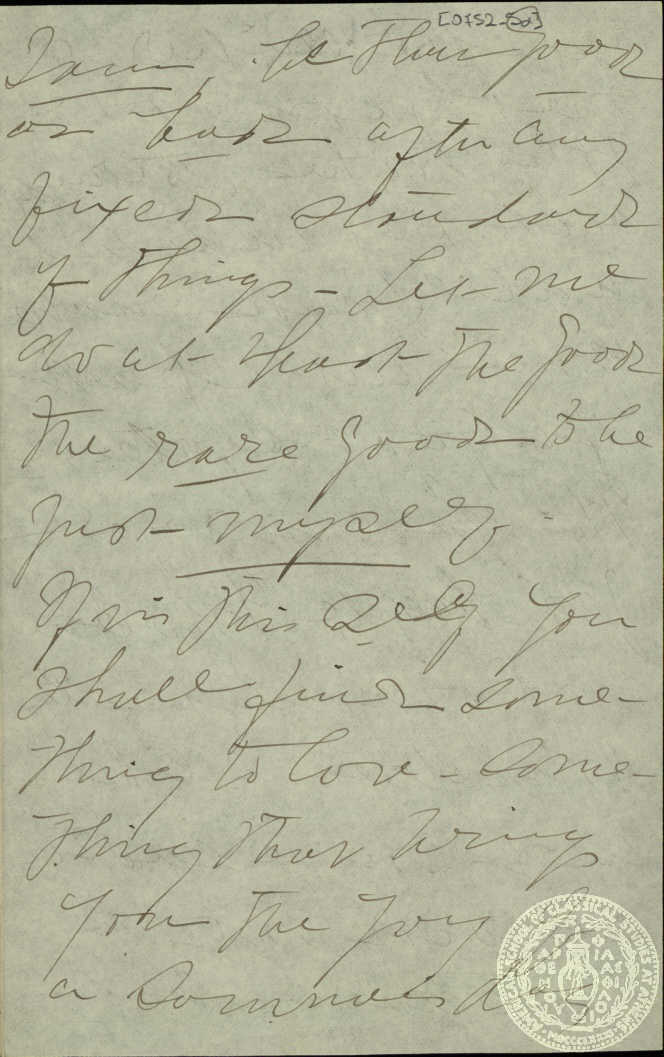 [0752-50]
I am, be then good
or bad after any
fixed standard
of things - Let me
do at least the good
the rare good to be
just myself -
If in this self you
shall find some-
thing to love - some-
thing that brings
you the joy of
a summer's day
AMERICAN SCHOOL OF CLASSICAL STUDIES AT ATHENS
MDCCCLXXXI